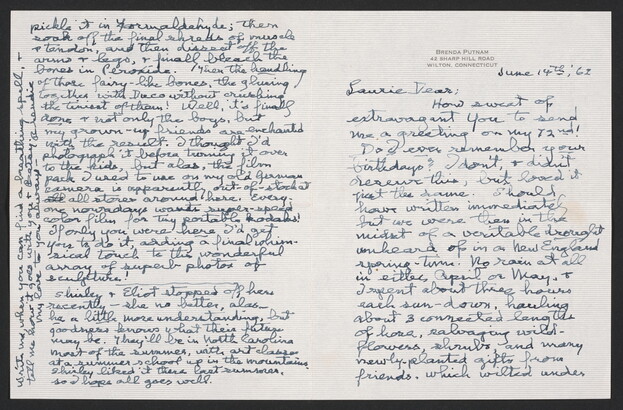 BRENDA PUTNAM
42 SHARP HILL ROAD
WILTON, CONNECTICUT
June 14th, '62
Laurie Dear;
How sweet of
extravagant you to send
me a greeting on my 72nd!
Do I ever remember your
birthdays? I don't, & didn't
deserve this, but loved it
just the same. Should
have written immediately
but we were then in the
midst of a veritable drought
unheard of in a New England
spring-time! No rain at all
in either April or May, &
I spent about three hours
each sun-down, hauling
about 3 connected lengths
of hose, salvaging wild-
flowers, shrubs, and many
newly-planted gifts from
friends, which wilted under
pickle it in Formaldehyde; then
soak off the final shreds of muscle
& tendon, and then dissect off the
arms & legs, & finally bleach the
bones in Peroxide. Then the handling
of those fairy-like bones, the glueing
together with Duco without crushing
the tiniest of them! Well, it's finally
done & not only the boys, but
my grown-up friends are enchanted
with the result. I thought I'd
photograph it before turning it over
to the kids, but alas, the film
pack I used to use on my old German
camera is apparently out-of-stock at
all stores around here. Every-
one nowadays wants super-speed
color film for my portable Kodaks!
If only you were here I'd get
you to do it, adding a final whim-
sical touch to the wonderful
array of superb photos of
sculpture!
Shirley & Eliot stopped off here
recently - she no better, alas -
he a little more understanding, but
goodness knows what their future
may be. They'll be in North Carolina
most of the summer, with art classes
at a summer school up in the mountains
Shirley liked it there last summer,
so I hope all goes well.
Write me when you can find a breathing spell, &
tell me how it goes with you &
my love to you always